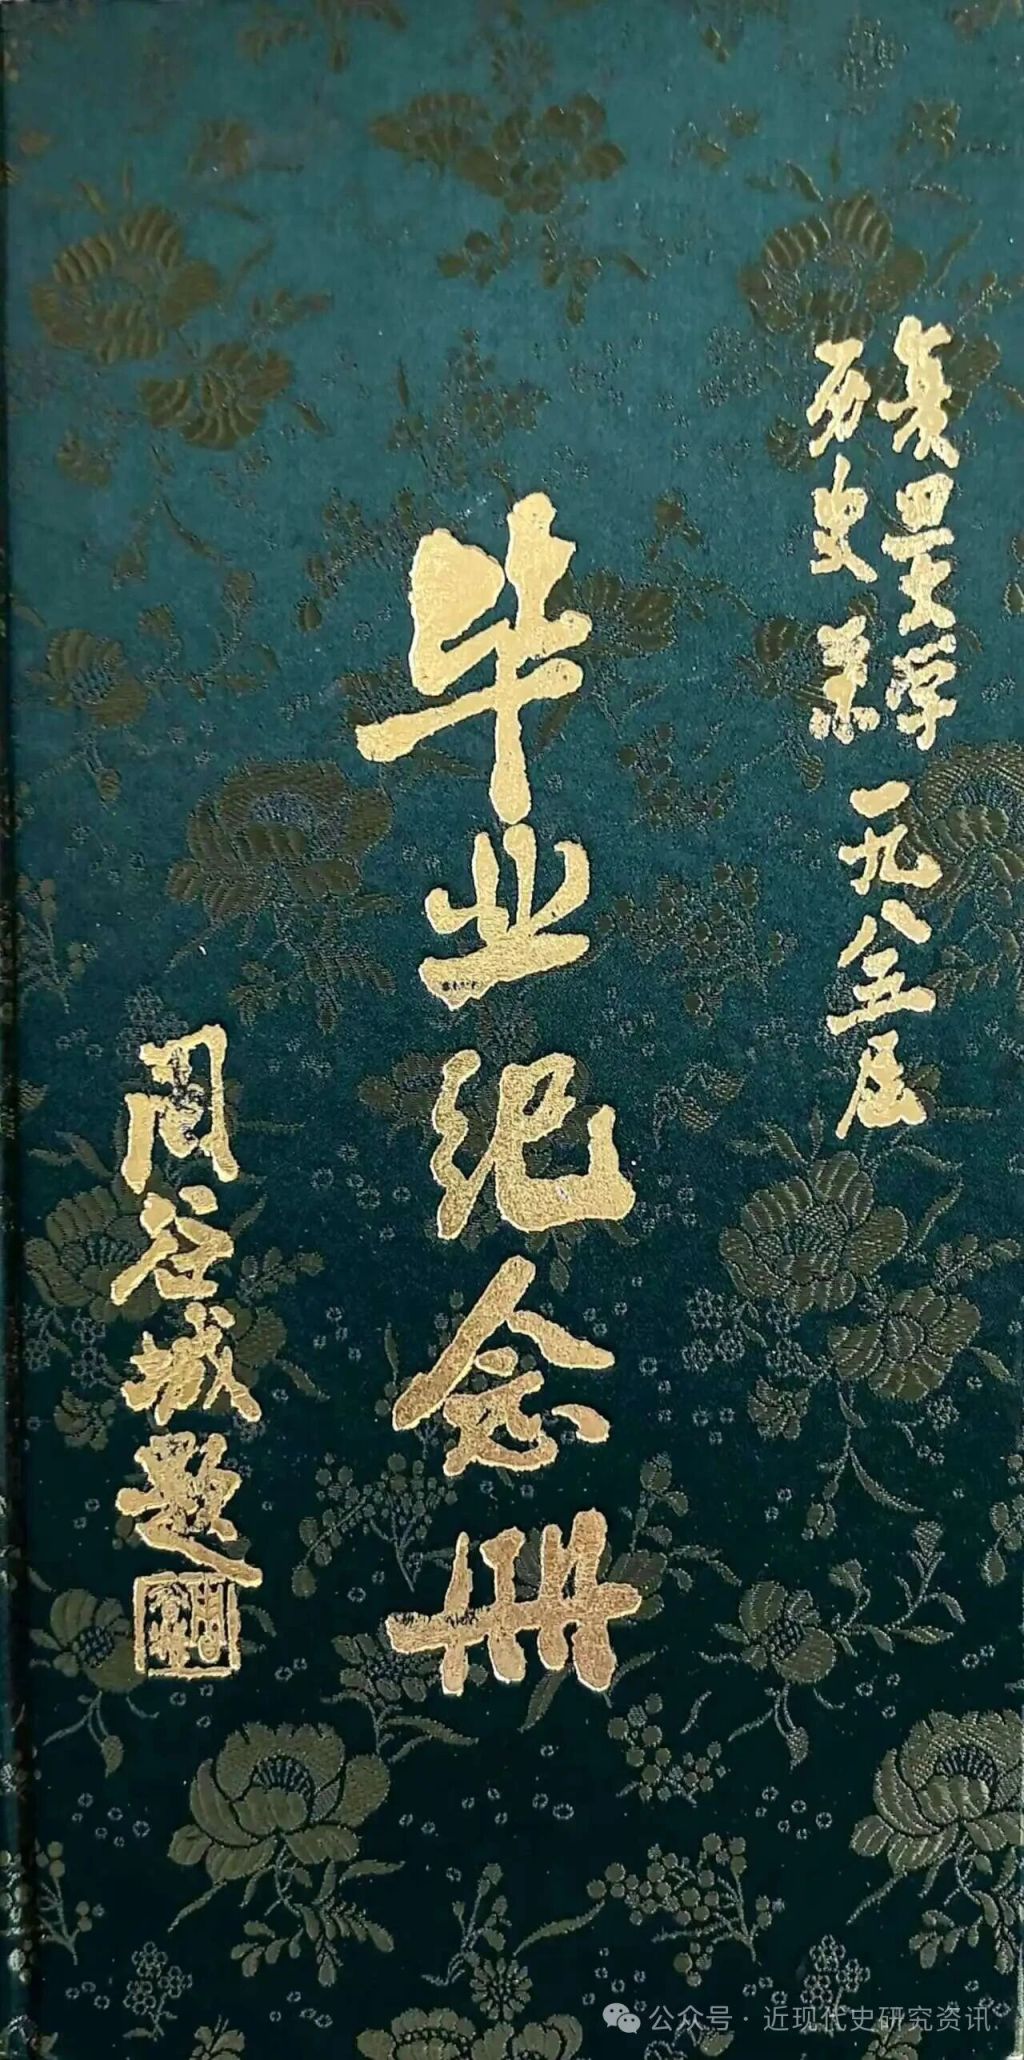 复旦大学
历史系
一九八五届
毕业纪念册
周谷城题
公众号·近现代史研究资讯